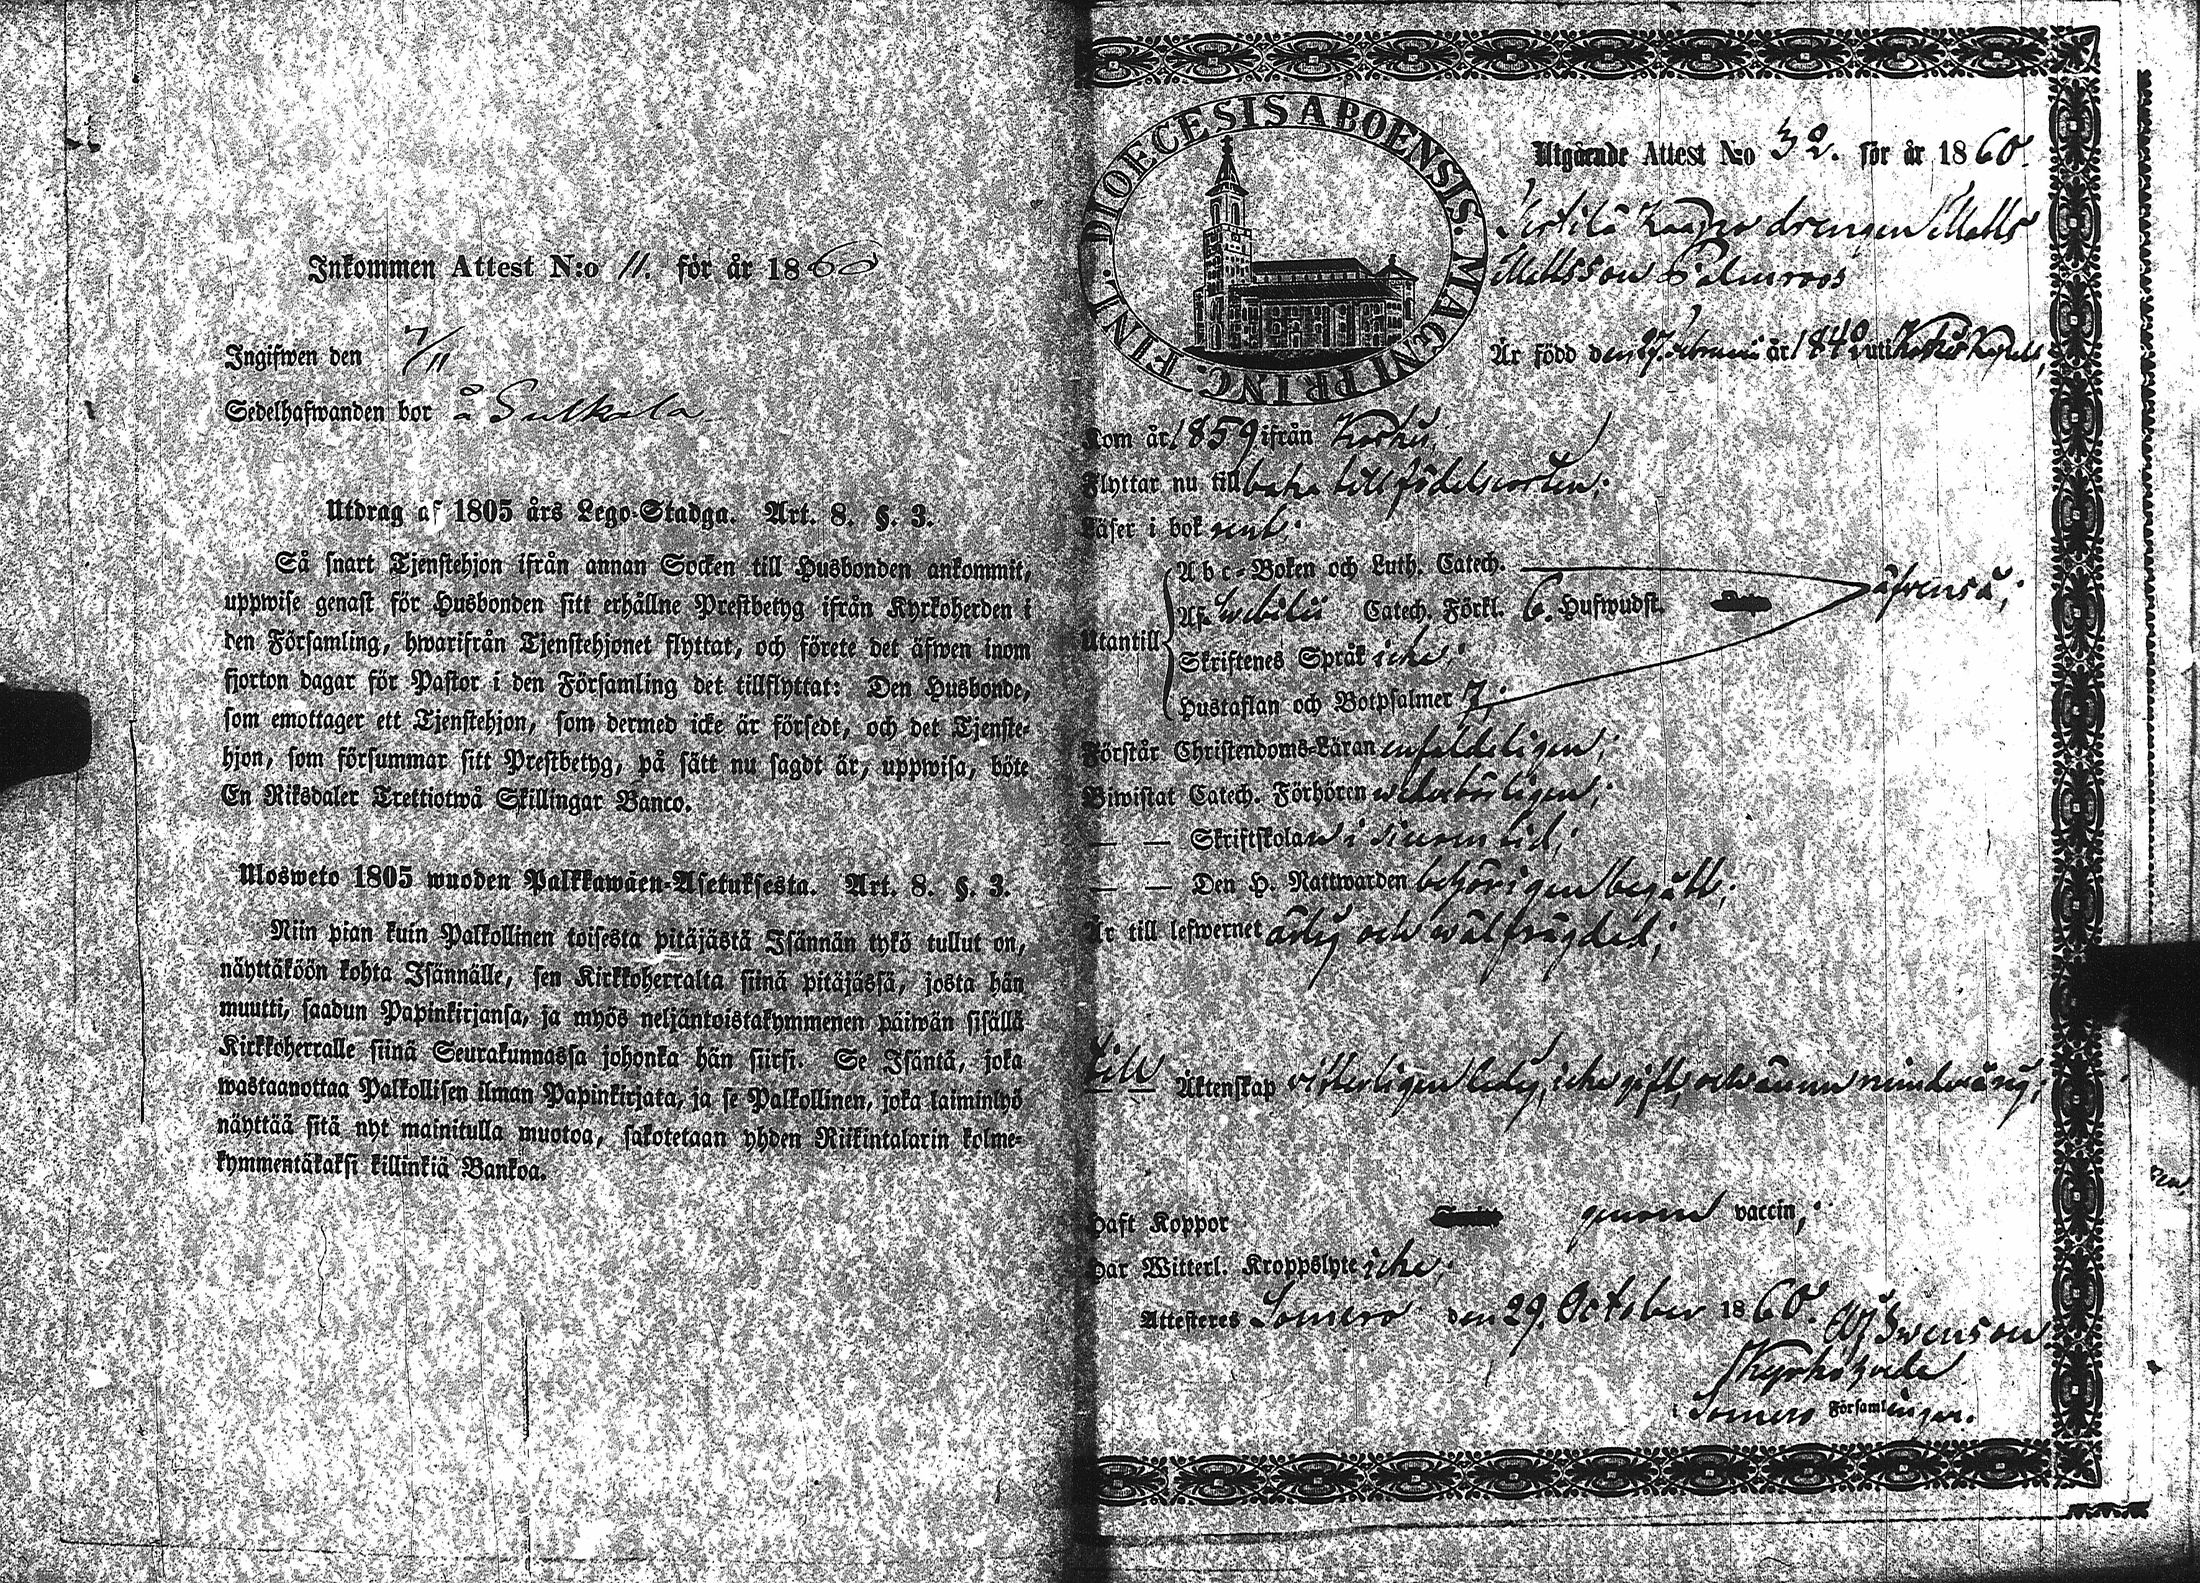 Inkommen Attest N:o 11. för år 1860
Ingifwen den 7/11
Sedelhafwanden bor å Sulkala
Utdrag af 1805 års Lego-Stadga. Art. 8. §. 3.
Så snart Tjenstehjon ifrån annan Socken till Husbonden ankommit,
uppwise genast för Husbonden sitt erhållne Prestbetyg ifrån Kyrkoherden i
den Församling, hwarifrån Tjenstehjonet flyttat, och förete det äfwen inom
fjorton dagar för Pastor i den Församling det tillflyttat: Den Husbonde,
som emottager ett Tjenstehjon, som dermed icke är försedt, och det Tjenste-
hjon, som försummar sitt Prestbetyg, på sätt nu sagdt är, uppwisa, böte
En Riksdaler Trettiotwå Skillingar Banco.
Ulosweto 1805 wuoden Palkkawäen-Asetuksesta. Art. 8. §. 3.
Niin pian kuin Palkollinen toisesta pitäjästä Isännän tykö tullut on,
näyttäköön kohta Isännälle, sen Kirkkoherralta siinä pitäjässä, josta hän
muutti, saadun Papinkirjansa, ja myös neljäntoistakymmenen päiwän sisällä
Kirkkoherralle siinä Seurakunnassa johonka hän siirsi. Se Isäntä, joka
wastaanottaa Palkollisen ilman Papinkirjata, ja se Palkollinen, joka laiminlyö
näyttää sitä nyt mainitulla muotoa, sakotetaan yhden Riikintalarin kolme-
kymmentäkaksi killinkiä Bankoa.
DIOECESIS ABOENSIS. MAGNI PRINC. FINL.
Utgående Attest N:o 32. för år 1860.
drengen Matts
Mattsson Palmroos
Är född den 27 Februarii år 1840 uti Koskis Kapell,
Kom år 1859 ifrån Koskis;
Flyttar nu tillbaka till födelseorten;
Läser i bok rent;
Utantill
A b c-Boken och Luth. Catech.
Af Swebilii Catech. Förkl. 6. Hufwudst. äfwenså;
Skriftenes Språk icke;
Hustaflan och Botpsalmer 7;
Förstår Christendoms-Läran enfaldeligen;
Biwistat Catech. Förhören wederbörligen;
— — Skriftskolan i sinom tid;
— — Den H. Nattwarden behörigen begått;
Är till lefwernet ärlig och wälfrägdad;
Till
— — Äktenskap witterligen ledig, icke gift, och ännu minderårig;
Haft Koppor genom vaccin;
Har Witterl. Kroppslyte icke;
Attesteres Somero den 29. October 1860. Swenson
Kyrkoherde
i Somero Församlingar.